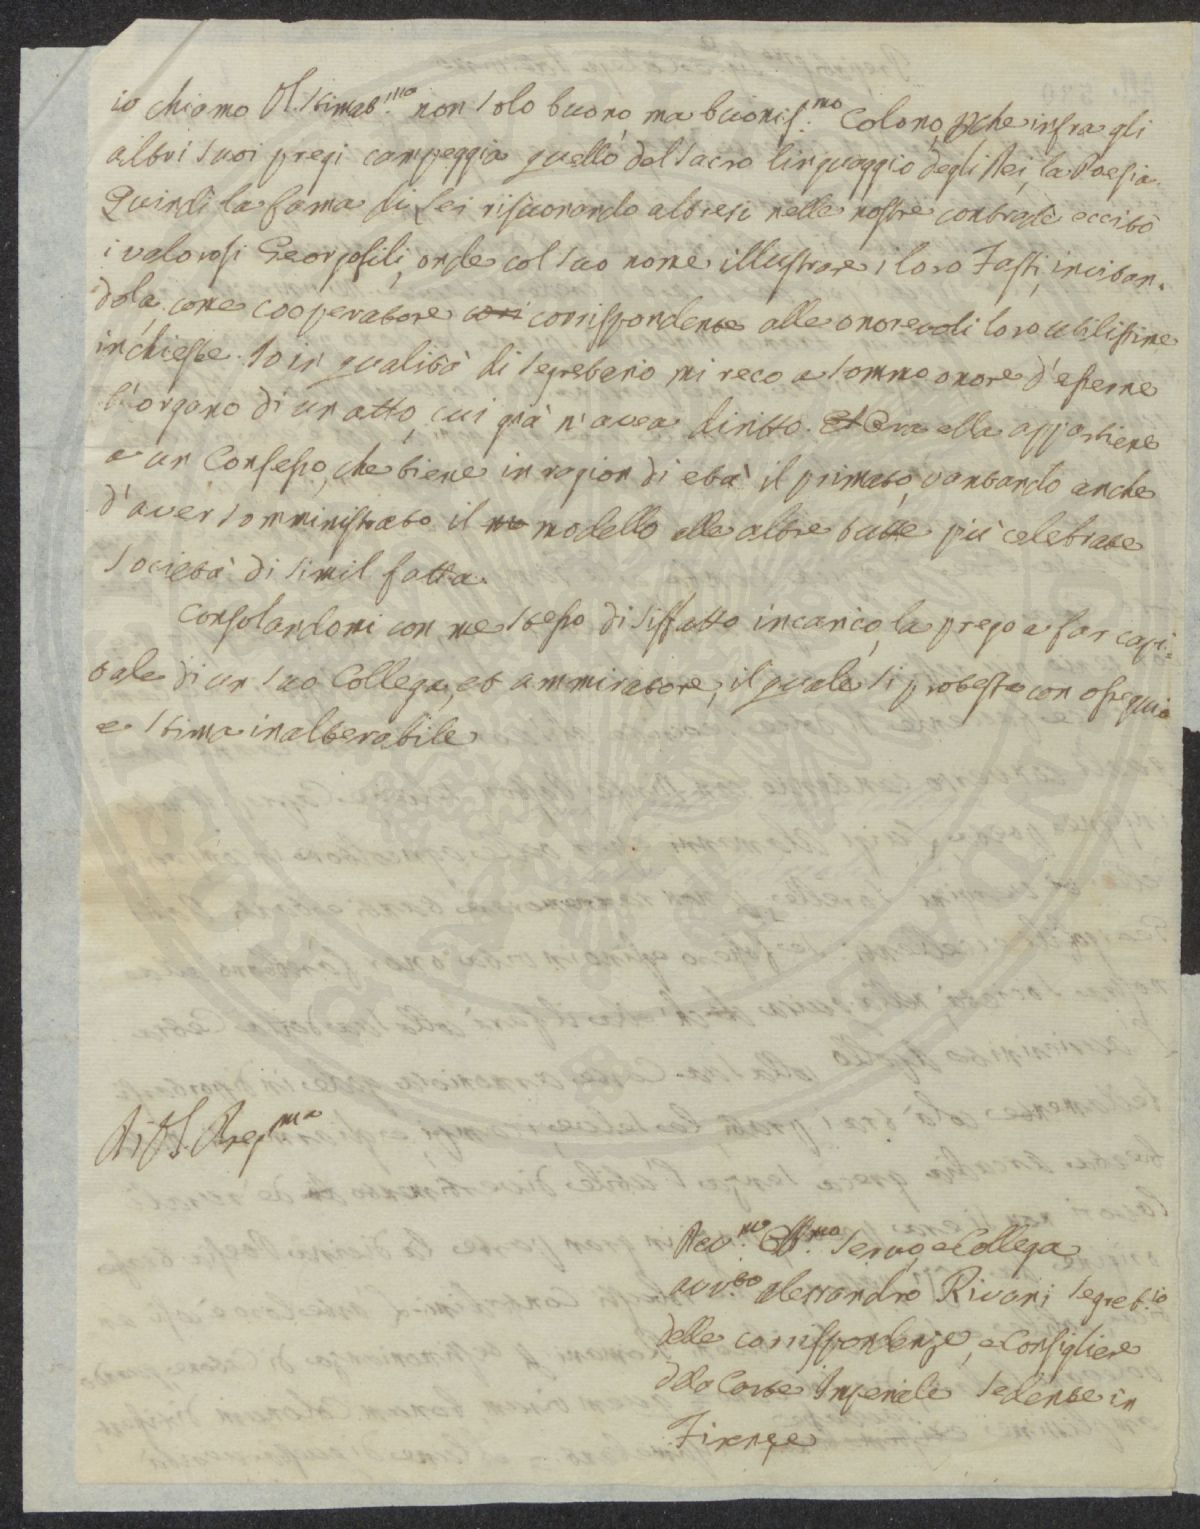 io chiamo V.S. stimab.ma non solo buono, ma buonis.mo Colono, pche infra gli
altri suoi pregi campeggia quello del sacro linguaggio degli Dei, la Poesia.
Quindi la fama di Lei risuonando altresi nelle nostre contrade eccitò
i valorosi Georgofili, onde col suo nome illustrare i loro Fasti, invitan-
dola come cooperatore cori corrispondente alle onorevoli loro utilissime
inchieste. Io in qualità di segretario mi reco a sommo onore d'esserne
l'organo di un atto, cui già n'avea diritto. Ora ella appartiene
a un Consesso, che tiene in ragion di età il primato, vantando anche
d'aver somministrato il mo modello alle altre tutte più celebrate
società di simil fatta.
Consolandomi con me stesso di siffatto incarico, la prego a far capi-
tale di un suo Collega, et ammiratore, il quale si protesta con ossequio
e stima inalterabile
Di V.S. Preg.ma
Dev.mo Obb.mo Servo, e Collega
avv.to Alessandro Rivani Segret.io
delle corrispondenze, e Consigliere
dela Corte Imperiale sedente in
Firenze